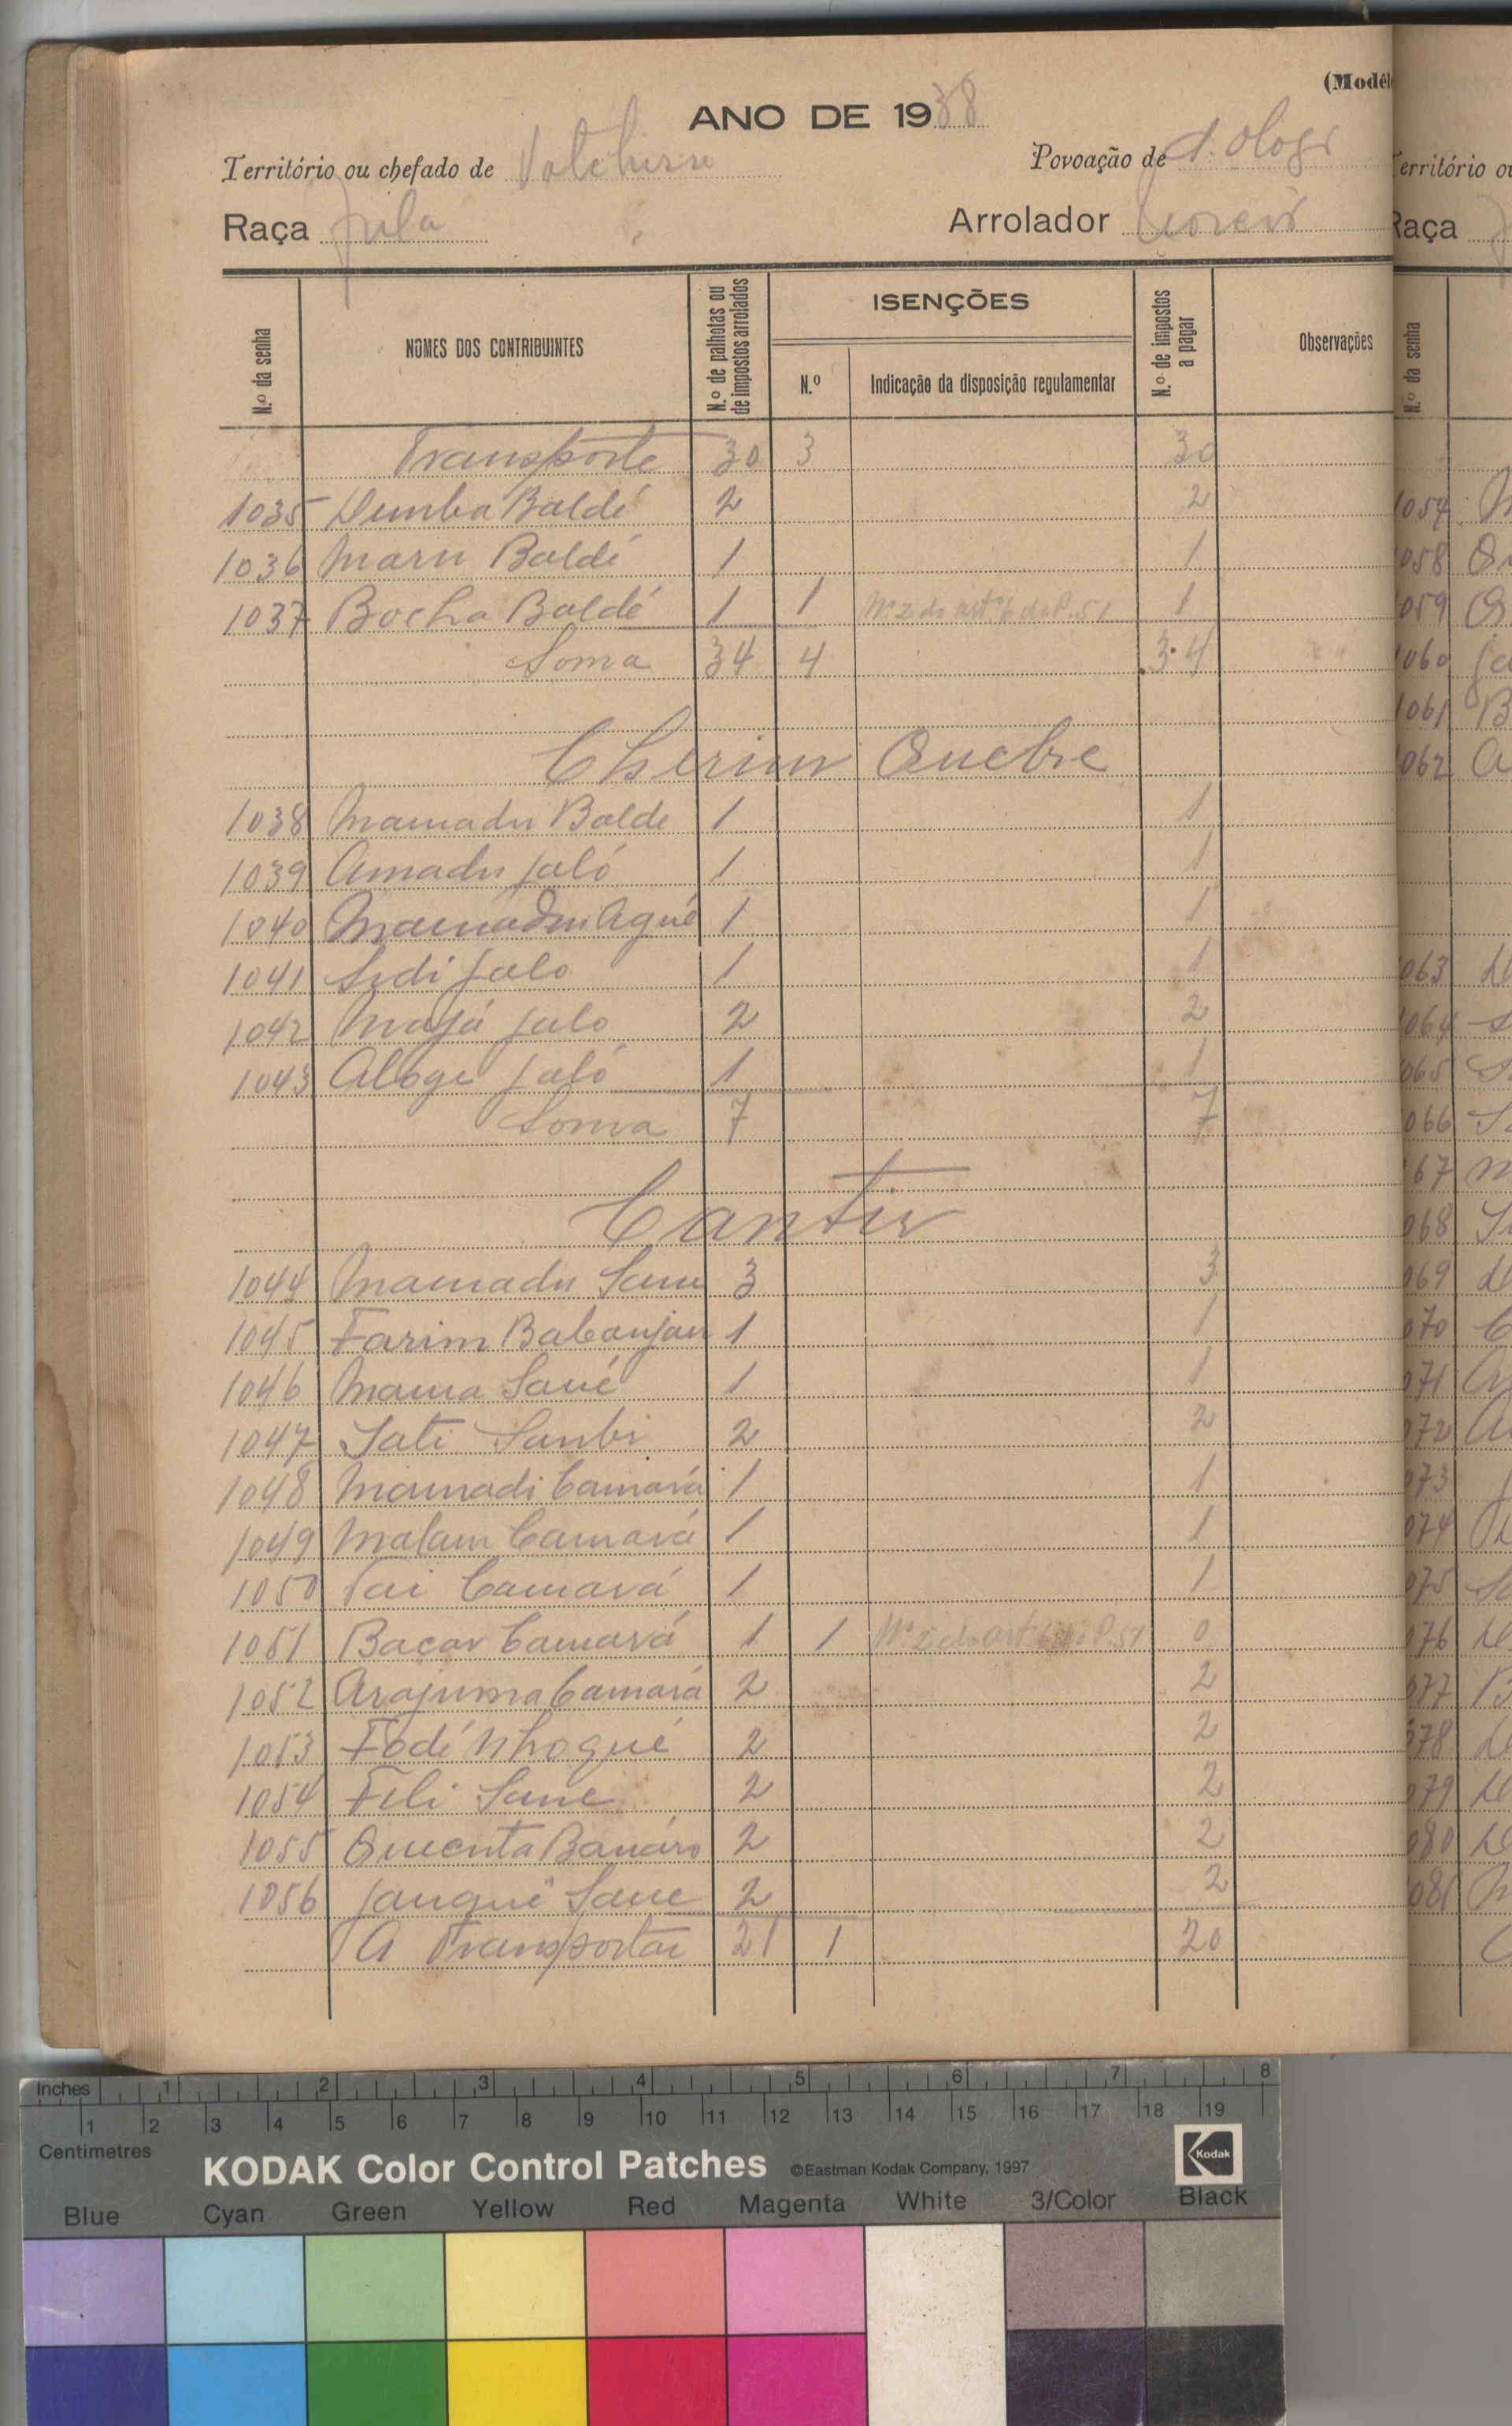 (Modêl
ANO DE 1938
Território ou chefado de
Povoação de
Raça Fula
Arrolador
N.º da senha
NOMES DOS CONTRIBUINTES
N.º de palhotas ou de impostos arrolados
ISENÇÕES
N.º
Indicação da disposição regulamentar
N.º de impostos a pagar
Observações
Transporte 30 3 30
1035 Demba Baldé 2 2
1036 Maru Baldé 1 1
1037 Bocha Baldé 1 1 Nº 2 do artº 6 do P. 51 1
Soma 34 4 34
Cherim Quebre
1038 Mamadu Balde 1 1
1039 Amadu Jaló 1 1
1040 Mamadu Agué 1 1
1041 Sedi Jalo 1 1
1042 Majá Jaló 2 2
1043 Aloge Jaló 1 1
Soma 7 7
Cantir
1044 Mamadu Sam 3 3
1045 Farim Babanjan 1 1
1046 Mama Sané 1 1
1047 Sati Sambi 2 2
1048 Mamadi Camará 1 1
1049 Malam Camará 1 1
1050 Camará 1 1
1051 Bacar Camará 1 1 Nº 2 do art 6 do P. 51 0
1052 Arajuma Camará 2 2
1053 Fodé Nhoqué 2 2
1054 Feli Sane 2 2
1055 Quenta 2 2
1056 Janqué Sane 2 2
A Transportar 21 1 20
erritório ou
Raça
N.º da senha
1057
1058
1059
1060
1061
1062
063
064
065
066
67
068
069
070
071
072
073
074
075
076
077
078
079
080
081
Inches 1 2 3 4 5 6 7 8
1 2 3 4 5 6 7 8 9 10 11 12 13 14 15 16 17 18 19
Centimetres
KODAK Color Control Patches ©Eastman Kodak Company, 1997 Kodak
Blue Cyan Green Yellow Red Magenta White 3/Color Black